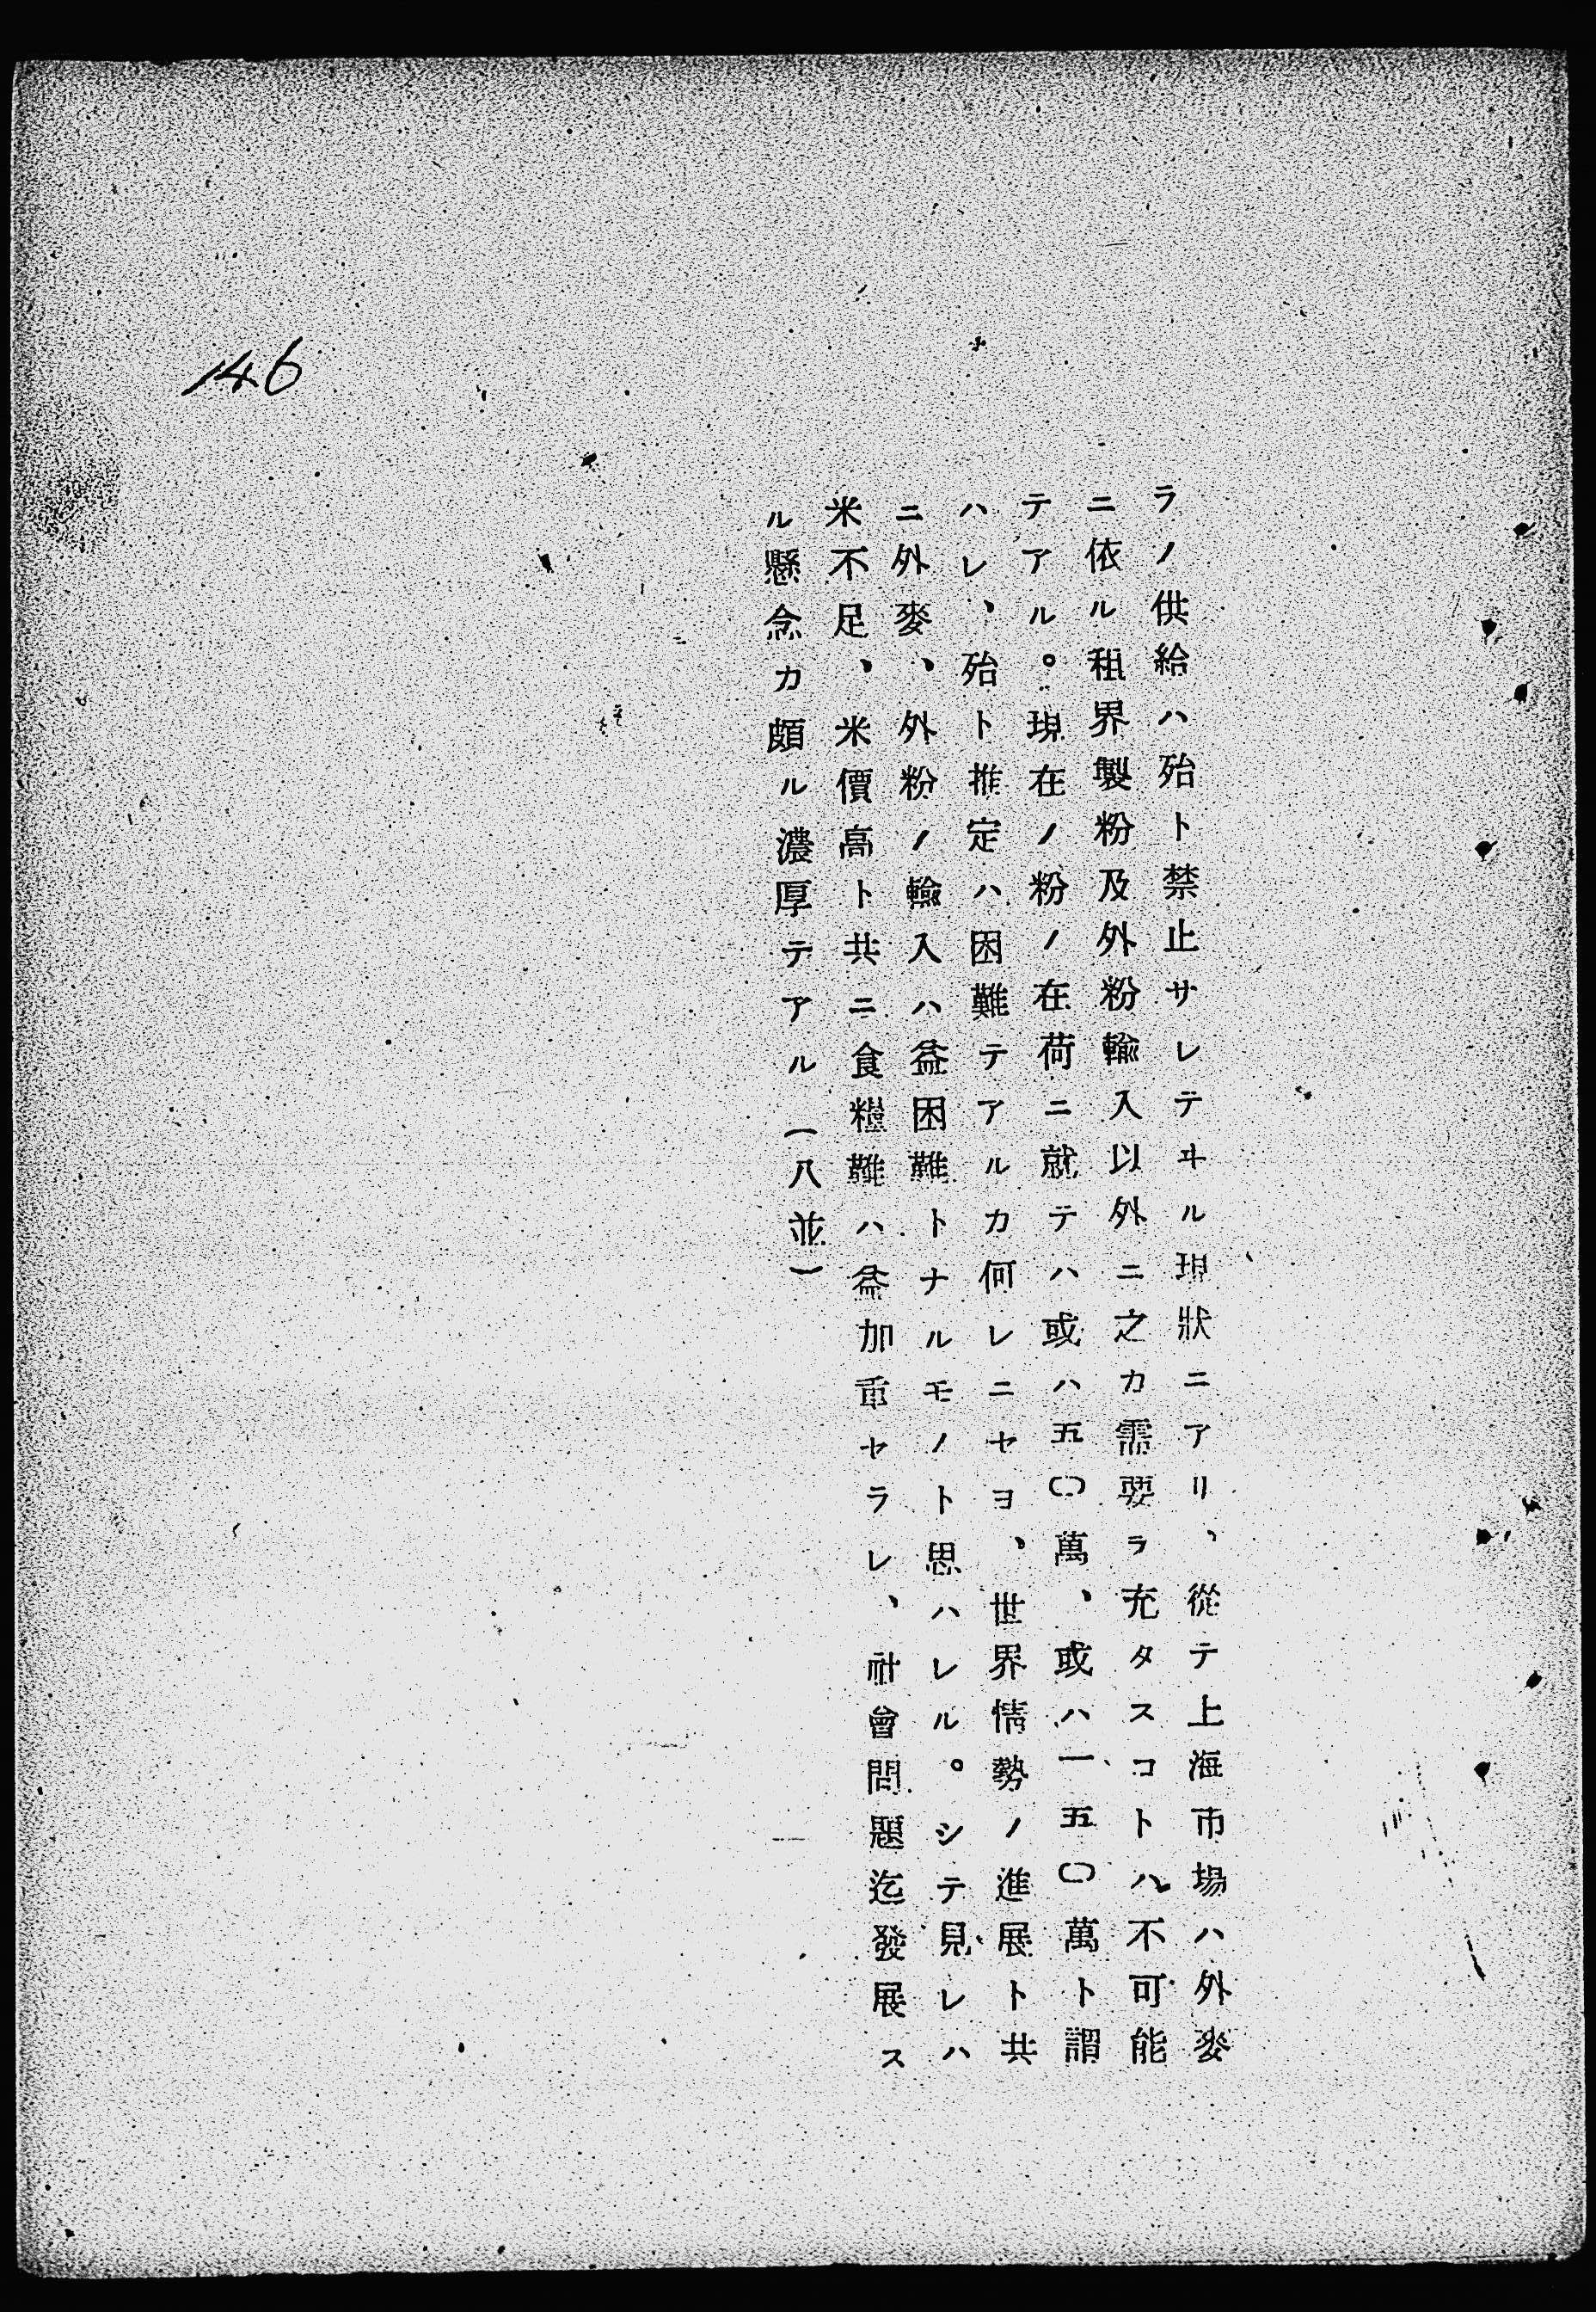 ラノ供給ハ殆ト禁止サレテヰル現狀ニアリ、從テ上海市場ハ外麥
ニ依ル租界製粉及外粉輸入以外ニ之カ需要ヲ充タスコトハ不可能
テアル。現在ノ粉ノ在荷ニ就テハ或ハ五〇萬、或ハ一五〇萬ト謂
ハレ、殆ト推定ハ困難テアルカ何レニセヨ、世界情勢ノ進展ト共
ニ外麥、外粉ノ輸入ハ益困難トナルモノト思ハレル。シテ見レハ
米不足、米價高ト共ニ食糧難ハ益加重セラレ、社會問題迄發展ス
ル懸念カ頗ル濃厚テアル(八並)
146